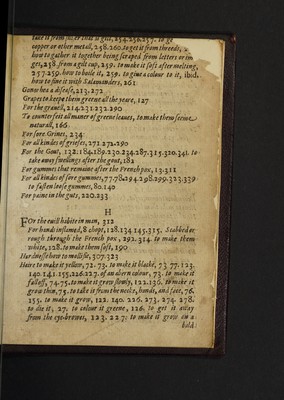 take it from siluer that is gilt, 254.256.257. to get
copper or other metall, 258.260. to get it from threeds,
how to gather it together being scraped from letters or im-
ges, 258. from a gilt cup, 259. to make it soft after melting,
257.259. how to boile it, 259. to giue a colour to it, ibid.
how to fine it with Salamanders, 261
Gonorhea a disease, 213.272
Grapes to keepe them greene all the yeare, 127
For the grauell, 214.231.232.290
To counterfeit all maner of greene leaues, to make them seeme
naturall, 166
For sore Grines, 234
For all kindes of griefes, 271.272.290
For the Gout, 132.184.189.230.234.287.315.320.341. to
take away swellings after the gout, 182
For gummes that remaine after the French pox, 13.311
For all kindes of sore gummes, 77.78.294.298.299.323.339
to fasten loose gummes, 80.140
For paine in the guts, 220.233
H
FOr the euill habite in man, 312
For hands inflamed, 8 chopt, 128.134.145.315. Scabbed or
rough through the French pox, 292.314. to make them
white, 128. to make them soft, 190
Hardnesse how to mollifie, 307.323
Haire to make it yellow, 72.73. to make it blacke, 73.77.123.
140.141.155.226.227. of an abern colour, 73. to make it
fall off, 74.75. to make it grow slowly, 122.136. to make it
grow thin, 75. to take it from the necke, hands, and face, 76.
155. to make it grow, 122. 140. 226. 273. 274. 278.
to die it, 27. to colour it greene, 126. to get it away
from the eye-browes, 123. 227. to make it grow on a
bald